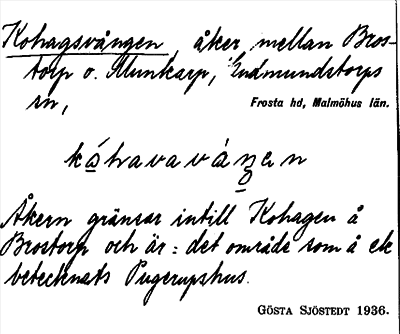 Kohagsvången, åker mellan Bros-
torp o. Munkarp, Gudmundstorps
sn,
Frosta hd, Malmöhus län.
Åkern gränsar intill Kohagen å
Brostorp och är: det område som å ek
betecknats Pugerupshus.
GÖSTA SJÖSTEDT 1936.